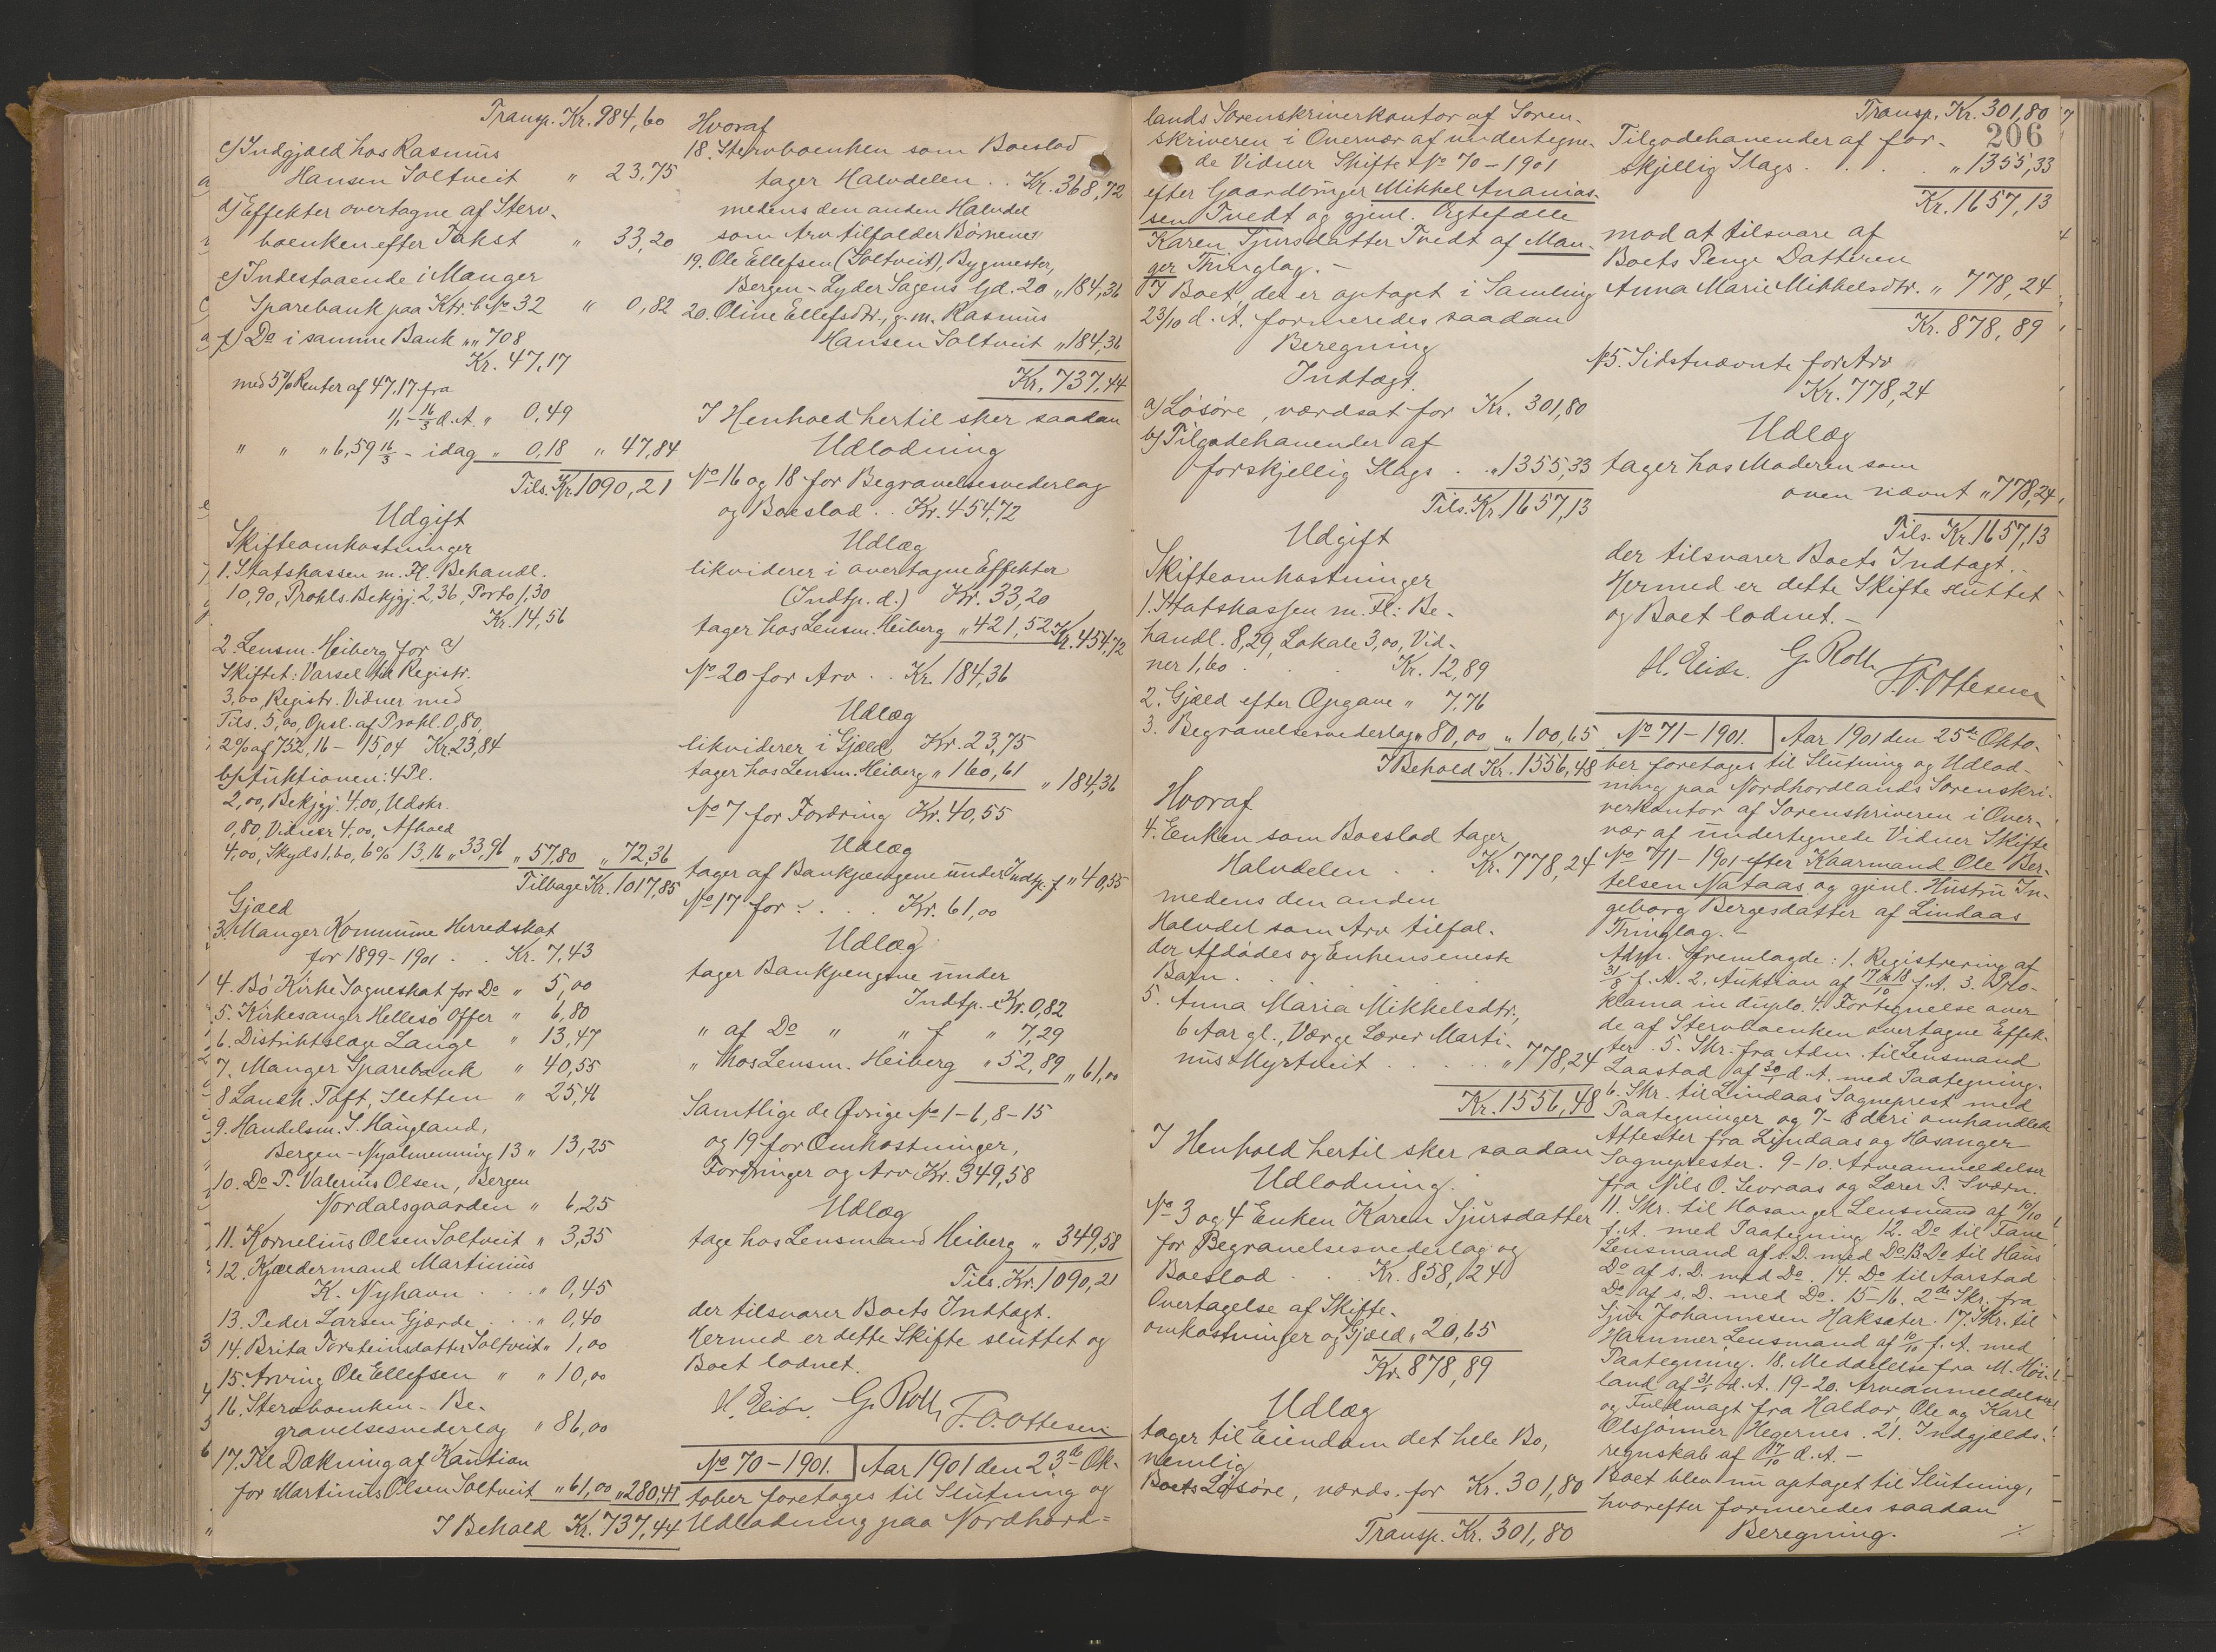 Transp. Kr. 984,60
c) Indgjæld hos Rasmus
Hansen Soltveit " 23,75
d) Effekter overtagne af Sterv-
boenken efter Takst " 33,20
e) Indestaaende i Manger
Sparebank paa Ktr. b. No 32 " 0,82
f) Do i samme Bank " " 708
Kr. 47,17
med 5% Renter af 47,17 fra
1/1 - 16/3 d. A. " 0,49
" " " 6,59 16/3 - idag " 0,18 " 47,84
Tils. Kr. 1090,21
Udgift
Skifteomkostninger
1. Statskassen m. Fl. Behandl.
10,90, Prokls. Bekjgj. 2,36, Porto 1,30
Kr. 14,56
2. Lensm. Heiberg for a)
Skiftet: Varsel til Registr.
3,00, Registr. Vidner med
Tils. 5,00, Opsl. af Prokl. 0,80,
2% af 752,16 - 15,04 Kr. 23,84
b) Auktionen: 4 Pl.
2,00, Bekjgj. 4,00, Udskr.
0,80, Vidner 4,00, Afhold
4,00, Skyds 1,60, 6% 13,16 " 33,96 " 57,80 " 72,36
Tilbage Kr. 1017,85
Gjæld
3. Manger Kommune Herredskat
for 1899-1901 . . Kr. 7,43
4. Bö Kirke Sogneskat for Do " 5,00
5. Kirkesanger Hellesö Offer " 6,80
6. Distriktslæge Lange " 13,47
7. Manger Sparebank " 40,55
8. Landh. Toft, Sletten " 25,46
9. Handelsm. S. Haugland,
Bergen - Nyalmenning 13 " 13,25
10. Do P. Valerius Olsen, Bergen
Nordalsgaarden " 6,25
11. Kornelius Olsen Soltveit " 3,35
12. Kjældermand Martinius
K. Nyhavn . . . " 0,45
13. Peder Larsen Gjærde . . " 0,40
14. Brita Torsteinsdatter Soltveit " 1,00
15. Arving Ole Ellefsen " " 10,00
16. Stervboenken - Be-
gravelsesvederlag " 86,00
17. Til Dækning af Kaution
for Martinus Olsen Soltveit " 61,00 " 280,41
I Behold Kr. 737,44
Hvoraf
18. Stervboenken som Boeslod
tager Halvdelen . . Kr. 368,72
medens den anden Halvdel
som Arv tilfalder Börnene:
19. Ole Ellefsen (Soltveit), Bygmester,
Bergen - Lyder Sagens Gd. 20 " 184,36
20. Oline Ellefsdtr., g. m. Rasmus
Hansen Soltveit " 184,36
Kr. 737,44
I Henhold hertil sker saadan
Udlodning
No 16 og 18 for Begravelsesvederlag
og Boeslod . . Kr. 454,72
Udlæg
likviderer i overtagne Effekter
(Indtp. d.) Kr. 33,20
tager hos Lensm. Heiberg " 421,52 Kr. 454,72
No 20 for Arv . . Kr. 184,36
Udlæg
likviderer i Gjæld, Kr. 23,75
tager hos Lensm. Heiberg " 160,61 " 184,36
No 7 for Fordring Kr. 40,55
Udlæg
tager af Bankpengene under Indtp. f " 40,55
No 17 for " . . . Kr. 61,00
Udlæg
tager Bankpengene under
Indtp. e Kr. 0,82
" af Do " " f " 7,29
" hos Lensm. Heiberg " 52,89 " 61,00
Samtlige de Övrige No 1-6, 8-15
og 19 for Omkostninger,
Fordringer og Arv Kr. 349,58
Udlæg
tage hos Lensmand Heiberg " 349,58
Tils. Kr. 1090,21
der tilsvarer Boets Indtægt.
Hermed er dette Skifte sluttet og
Boet lodnet.
H. Eide. G. Roth F. O. Ottesen
No 70 - 1901. Aar 1901 den 23de Ok-
tober foretoges til Slutning og
Udlodning paa Nordhord-
lands Sorenskriverkontor af Soren-
skriveren i Overvær af undertegne-
de Vidner Skifte No 70 - 1901
efter Gaardbruger Mikkel Ananias-
sen Tvedt og gjenl. Ægtefælle
Karen Sjursdatter Tvedt af Man-
ger Thinglag. -
I Boet, der er optaget i Samling
23/10 d. A. formeredes saadan
Beregning
Indtægt.
a) Lösöre, værdsat for Kr. 301,80
b) Tilgodehavender af
forskjellig Slags . . " 1355,33
Tils. Kr. 1657,13
Udgift
Skifteomkostninger
1. Statskassen m. Fl.: Be-
handl. 8,29, Lokale 3,00, Vid-
ner 1,60 . . Kr. 12,89
2. Gjæld efter Opgave " 7,76
3. Begravelsesvederlag " 80,00 " 100,65
I Behold Kr. 1556,48
Hvoraf
4. Enken som Boeslod tager
Halvdelen . . Kr. 778,24
medens den anden
Halvdel som Arv tilfal-
der Afdödes og Enkens eneste
Barn.
5. Anna Maria Mikkelsdtr.,
6 Aar gl., Værge Lærer Marti-
nus Myrtveit . . . . " 778,24
Kr. 1556,48
I Henhold hertil sker saadan
Udlodning.
No 3 og 4 Enken Karen Sjursdatter
for Begravelsesvederlag og
Boeslod . . Kr. 858,24
Overtagelse af Skifte-
omkostninger og Gjæld " 20,65
Kr. 878,89
Udlæg
tager til Eiendom det hele Bo,
nemlig
Boets Lösöre, værds. for Kr. 301,80
Transp. Kr. 301,80
Transp. Kr. 301,80
206
Tilgodehavender af for-
skjellig Slags . . . . " 1355,33
Kr. 1657,13
mod at tilsvare af
Boets Penge Datteren
Anna Marie Mikkelsdtr. " 778,24
Kr. 878,89
No 5. Sidstnævnte for Arv
Kr. 778,24
Udlæg
tager hos Moderen som
oven nævnt " 778,24
Tils. Kr. 1657,13
der tilsvarer Boets Indtægt.
Hermed er dette Skifte sluttet
og Boet lodnet. -
H. Eide. G. Roth F. O. Ottesen
No 71 - 1901. Aar 1901 den 25de Okto-
ber foretoges til Slutning og Udlod-
ning paa Nordhordlands Sorenskri-
verkontor af Sorenskriveren i Over-
vær af undertegnede Vidner Skifte
No 71 - 1901 efter Kaarmand Ole Ber-
telsen Nataas og gjenl. Hustru In-
geborg Bergesdatter af Lindaas
Thinglag. -
Adm. fremlagde: 1. Registrering af
31/8 f. A. 2. Auktion af 17 og 18/10 f. A. 3. Pro-
klama in duplo. 4. Fortegnelse over
de af Stervboenken overtagne Effek-
ter. 5. Skr. fra Adm. til Lensmand
Laastad af 30/1 d. A. med Paategning.
6. Skr. til Lindaas Sogneprest med
Paategninger og 7-8 deri omhandlede
Attester fra Lindaas og Hosanger
Sogneprester. 9-10. Arveanmeldelser
fra Nils O. Sevraas og Lærer P. Sværn.
11. Skr. til Hosanger Lensmand af 10/10
f. A. med Paategning 12. Do til Fane
Lensmand af s. D. med Do 13. Do til Haus
Do af s. D. med Do. 14. Do til Aarstad
Do af s. D. med Do. 15-16. 2de Skr. fra
Sjur Johannesen Haksæter. 17. Skr. til
Hammer Lensmand af 10/10 f. A. med
Paategning. 18. Meddelelse fra M. Höi-
land af 31/1 d. A. 19-20. Arveanmeldelser
og Fuldmagt fra Haldor, Ole og Karl
Olssönner Hegernes. 21. Indgjælds-
regnskab af 17/10 d. A. -
Boet blev nu optaget til Slutning,
hvorefter formeredes saadan
Beregning.